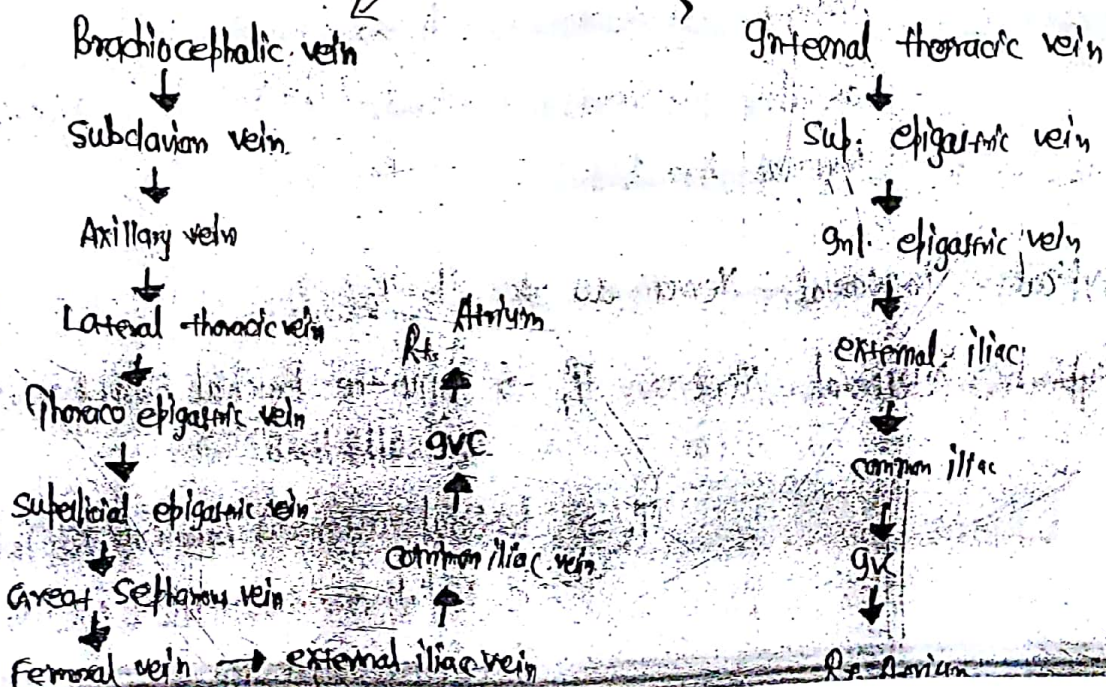 Brachiocephalic vein
Subclavian vein
Axillary vein
Lateral thoracic vein
Thoraco epigastric vein
Superficial epigastric vein
Great Sephanous vein
Femoral vein → external iliac vein
common iliac vein
IVC
Rt. Atrium
Internal thoracic vein
Sup. epigastric vein
Inf. epigastric vein
external iliac
common iliac
IVC
Rt. Atrium